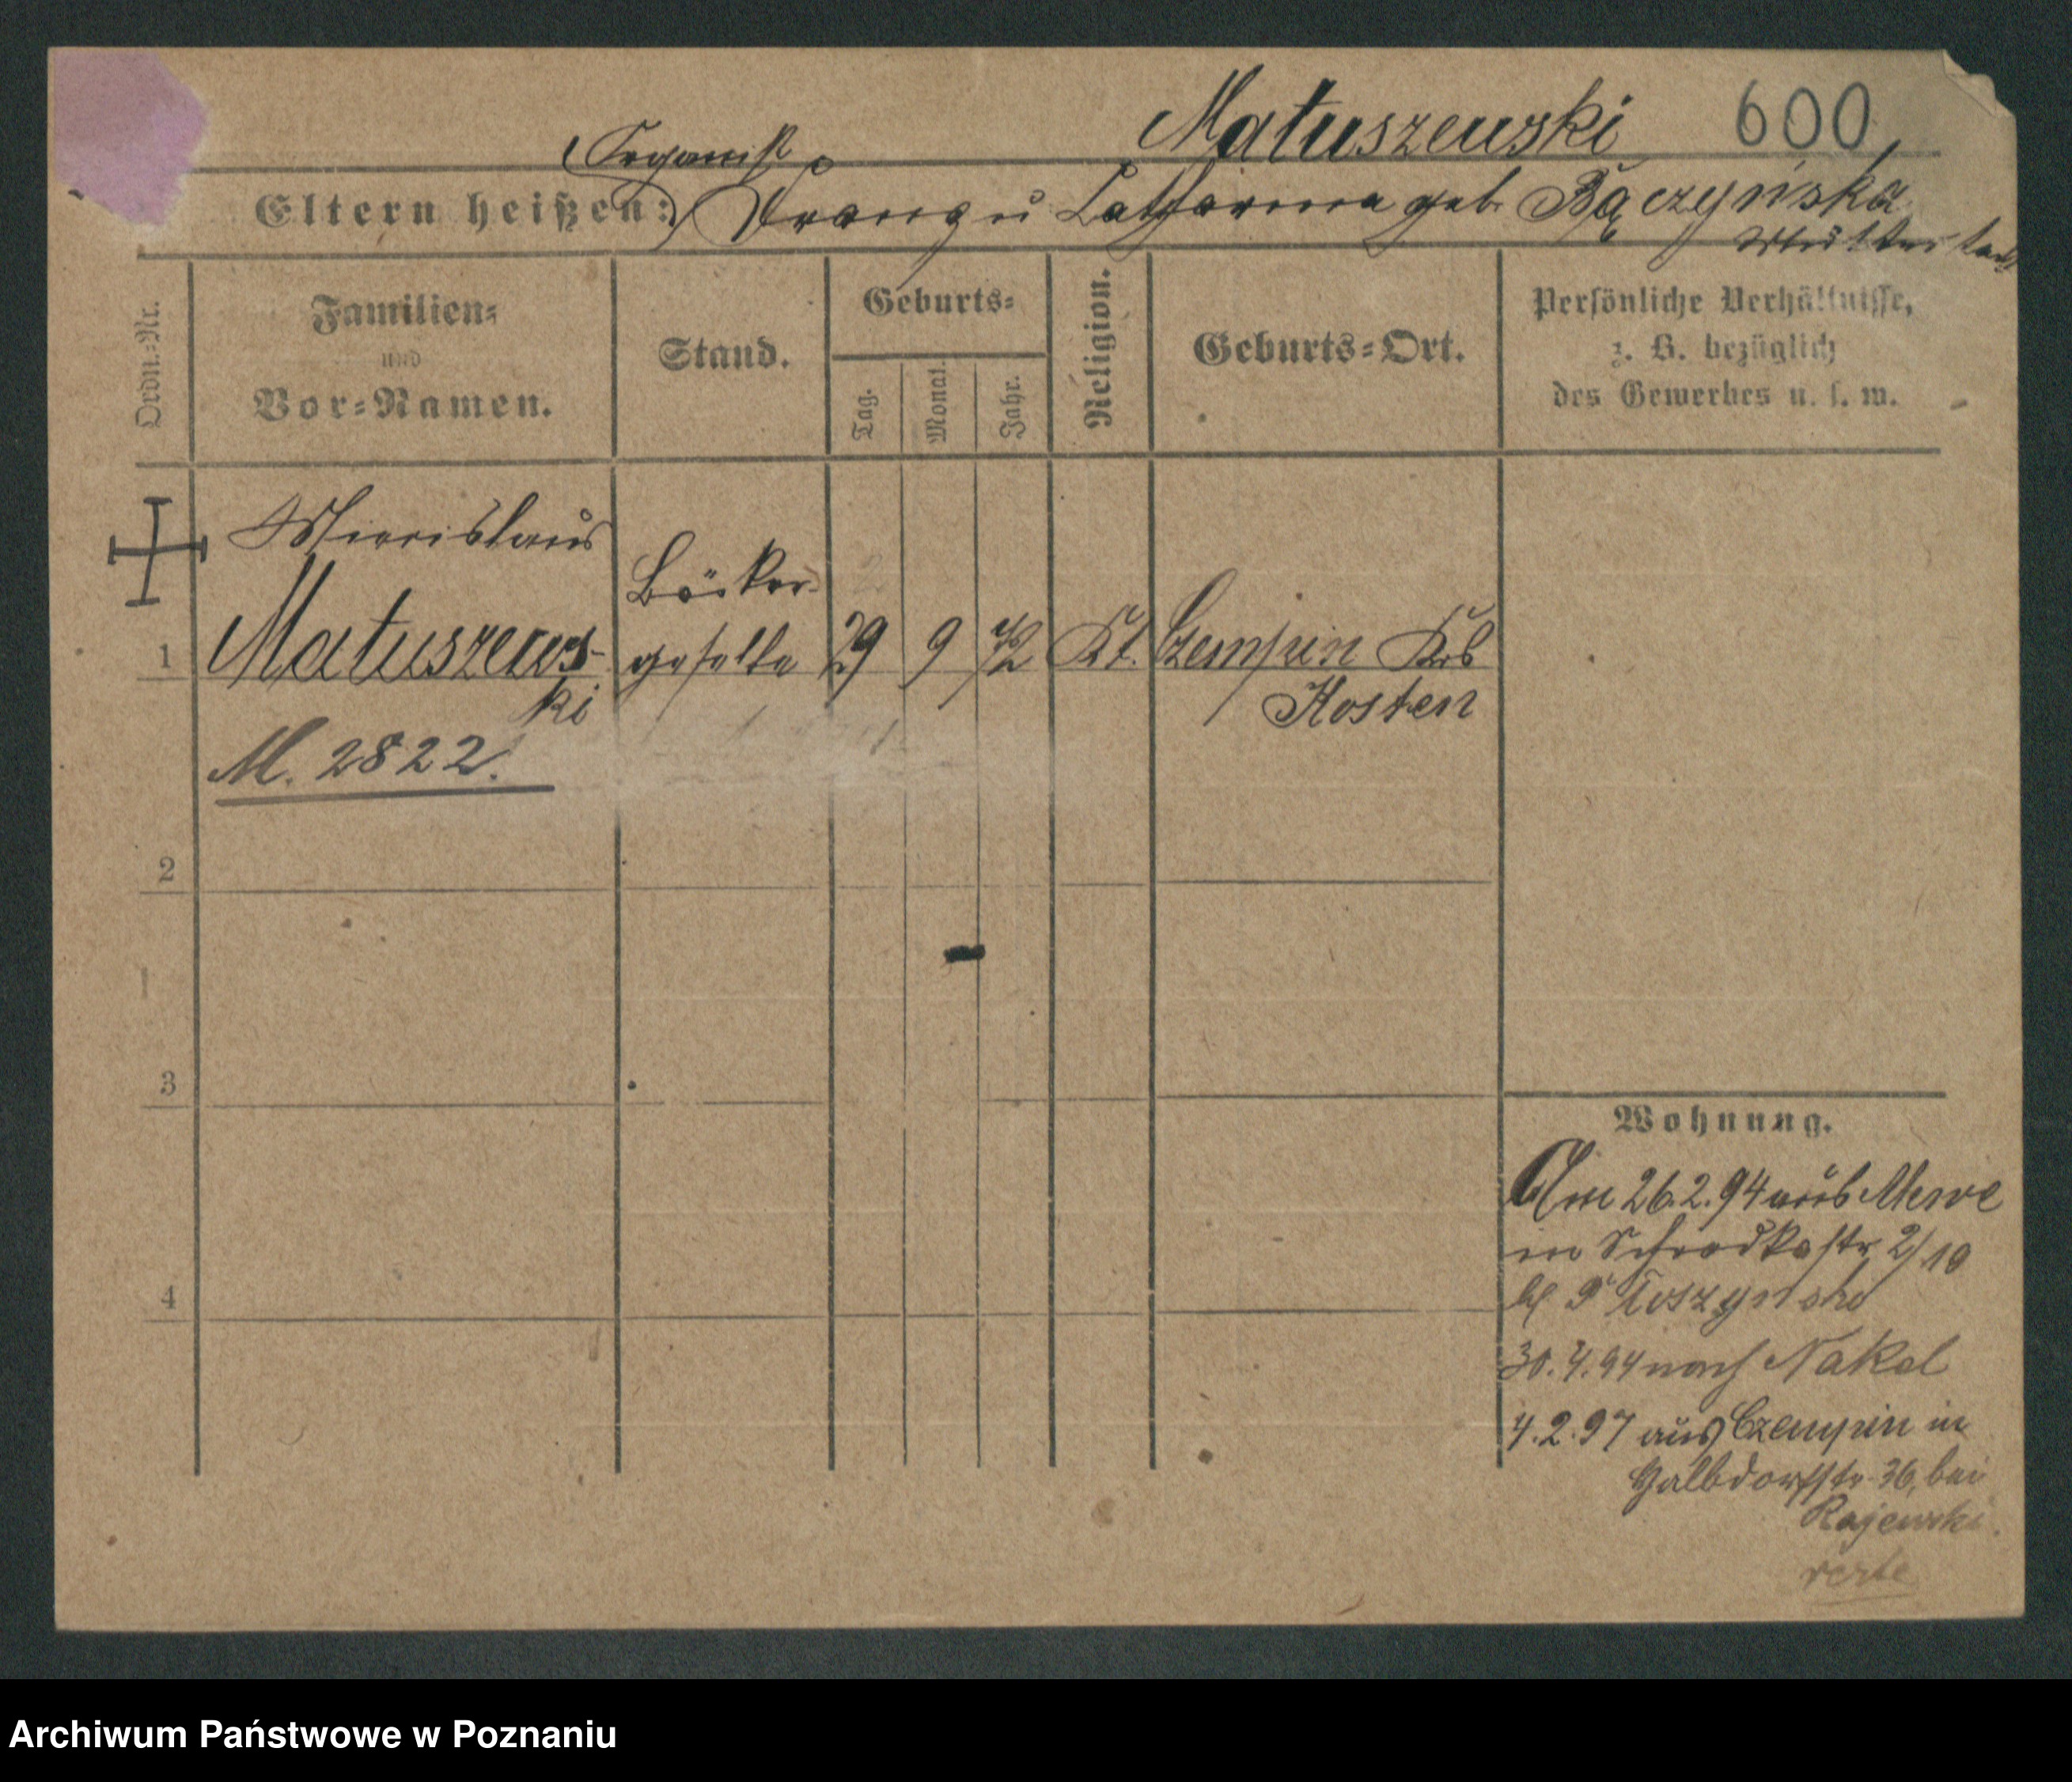 Matuszewski 600
Organist
Eltern heißen: Franz u Catharina geb. Bączyńska
Mutter todt
Ordn.-Nr.
Familien-
und
Vor-Namen.
Stand.
Geburts-
Tag.
Monat.
Jahr.
Religion.
Geburts-Ort.
Persönliche Verhältnisse,
z. B. bezüglich
des Gewerbes u. s. w.
Bäcker-
1 Matuszews- geselle 29 9 72 Kt. Czempin Krs
ki Kosten
M. 2822.
2
3
4
Wohnung.
Am 26.2.94 aus Mewe
in Schrodkastr 2/10
30.4.94 nach Nakel
4.2.97 aus Czempin in
Halbdorfstr 36, bei
Rajewski.
verte
Archiwum Państwowe w Poznaniu